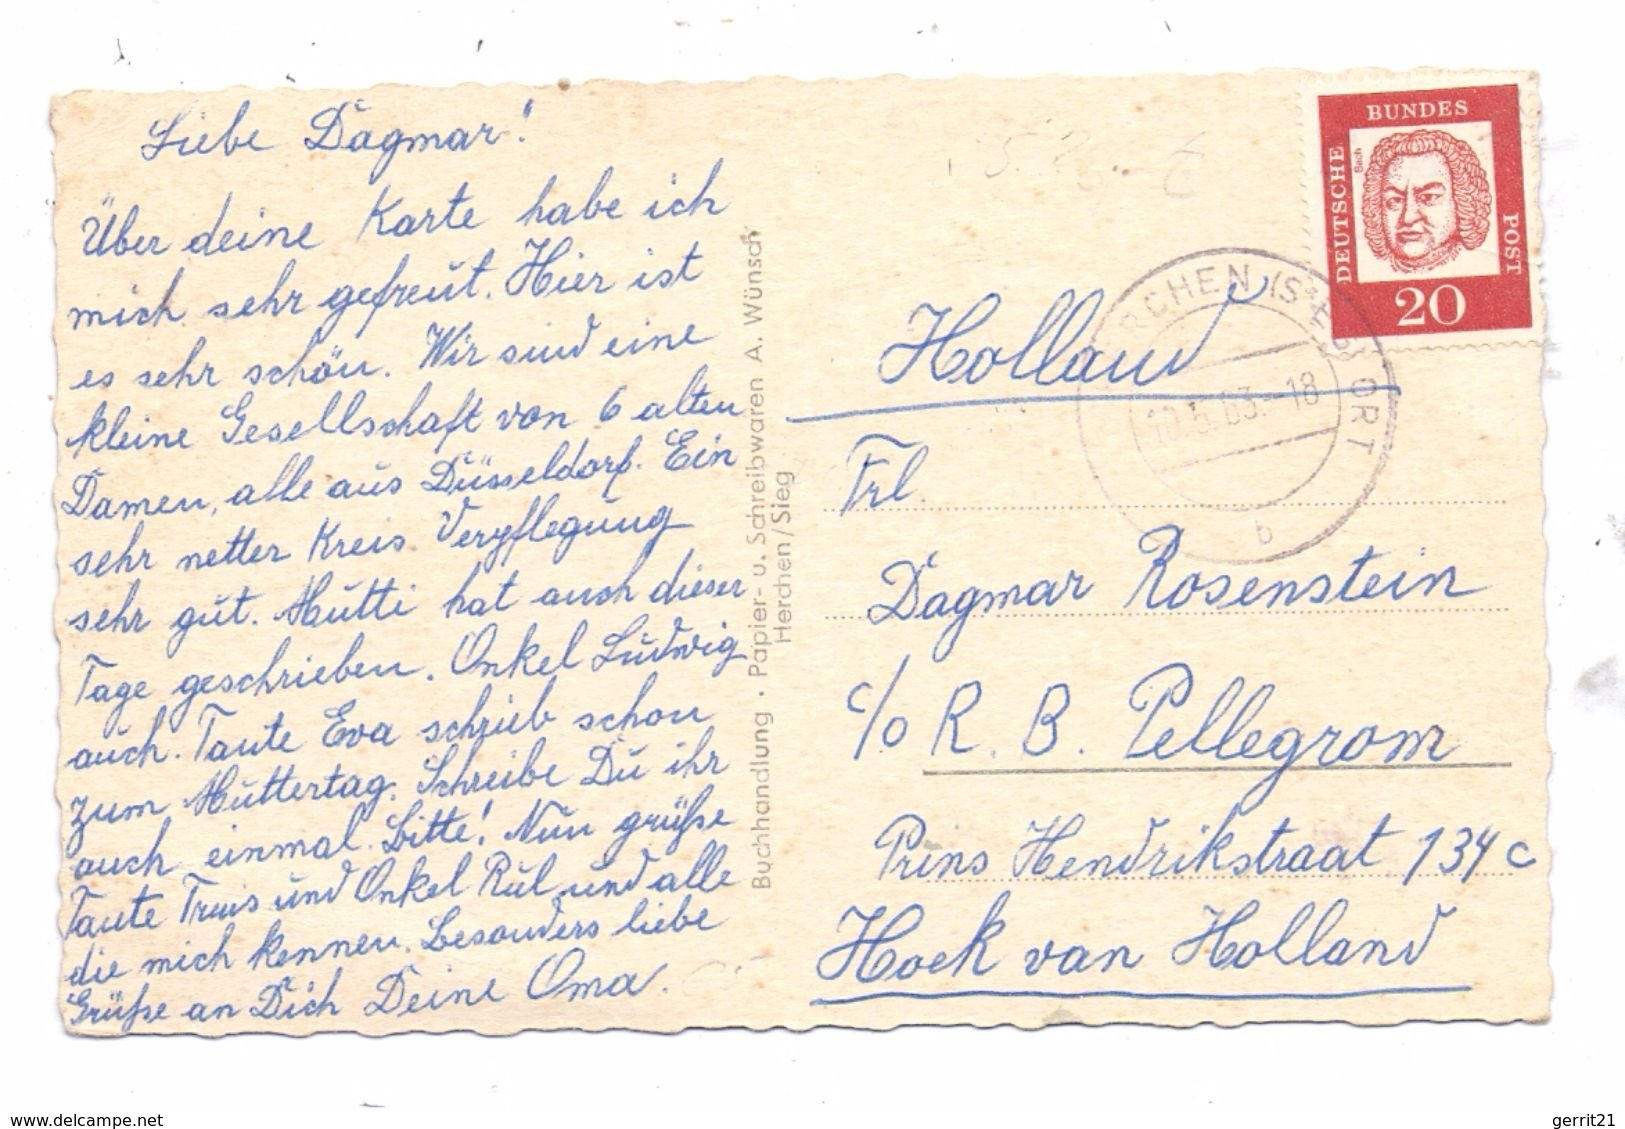 Liebe Dagmar!
Über deine Karte habe ich
mich sehr gefreut. Hier ist
es sehr schön. Wir sind eine
kleine Gesellschaft von 6 alten
Damen, alle aus Düsseldorf. Ein
sehr netter Kreis. Verpflegung
sehr gut. Mutti hat auch dieser
Tage geschrieben. Onkel Ludwig
auch. Tante Eva schrieb schon
zum Muttertag. Schreibe Du ihr
auch einmal. Bitte! Nun grüße
Tante Truis und Onkel Rul und alle
die mich kennen. Besonders liebe
Grüße an Dich Deine Oma.
Buchhandlung · Papier- u. Schreibwaren A. Wünsch
Herchen/Sieg
DEUTSCHE
BUNDES
POST
Bach
20
RCHEN (SIEG)
ORT
-18
b
Holland
Frl.
Dagmar Rosenstein
c/o R. B. Pellegrom
Prins Hendrikstraat 134 c
Hoek van Holland
delcampe.net
gerrit21